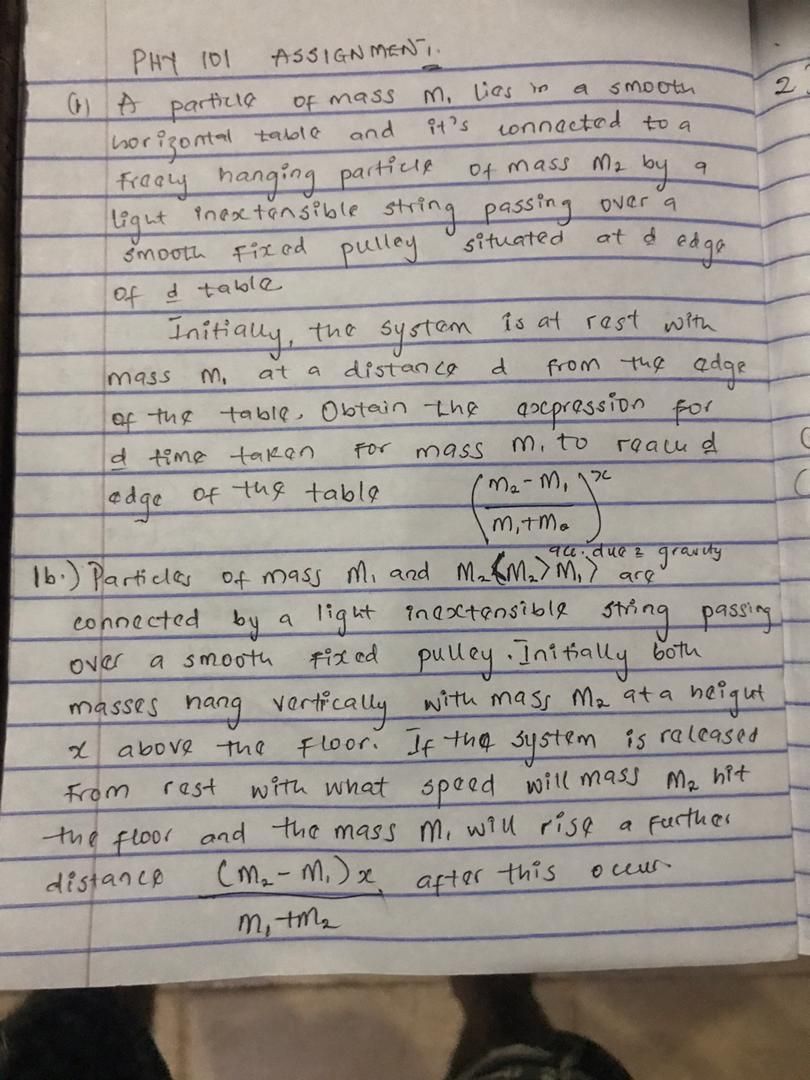 PHY 101 ASSIGNMENT.
(1) A particle of mass M₁ lies in a smooth
horizontal table and it's connected to a
freely hanging particle of mass M₂ by a
light inextensible string passing over a
smooth fixed pulley situated at d edge
of d table
Initially, the system is at rest with
mass M₁ at a distance d from the edge
of the table. Obtain the expression for
d time taken for mass M₁ to reach d
edge of the table (M₂ - M₁ / M₁ + M₂)x
acc. due 2 gravity
1b.) Particles of mass M₁ and M₂ <M₂>M₁> are
connected by a light inextensible string passing
over a smooth fixed pulley. Initially both
masses hang vertically with mass M₂ at a height
x above the floor. If the system is released
from rest with what speed will mass M₂ hit
the floor and the mass M₁ will rise a further
distance (M₂ - M₁)x / M₁ + M₂ after this occur.
2